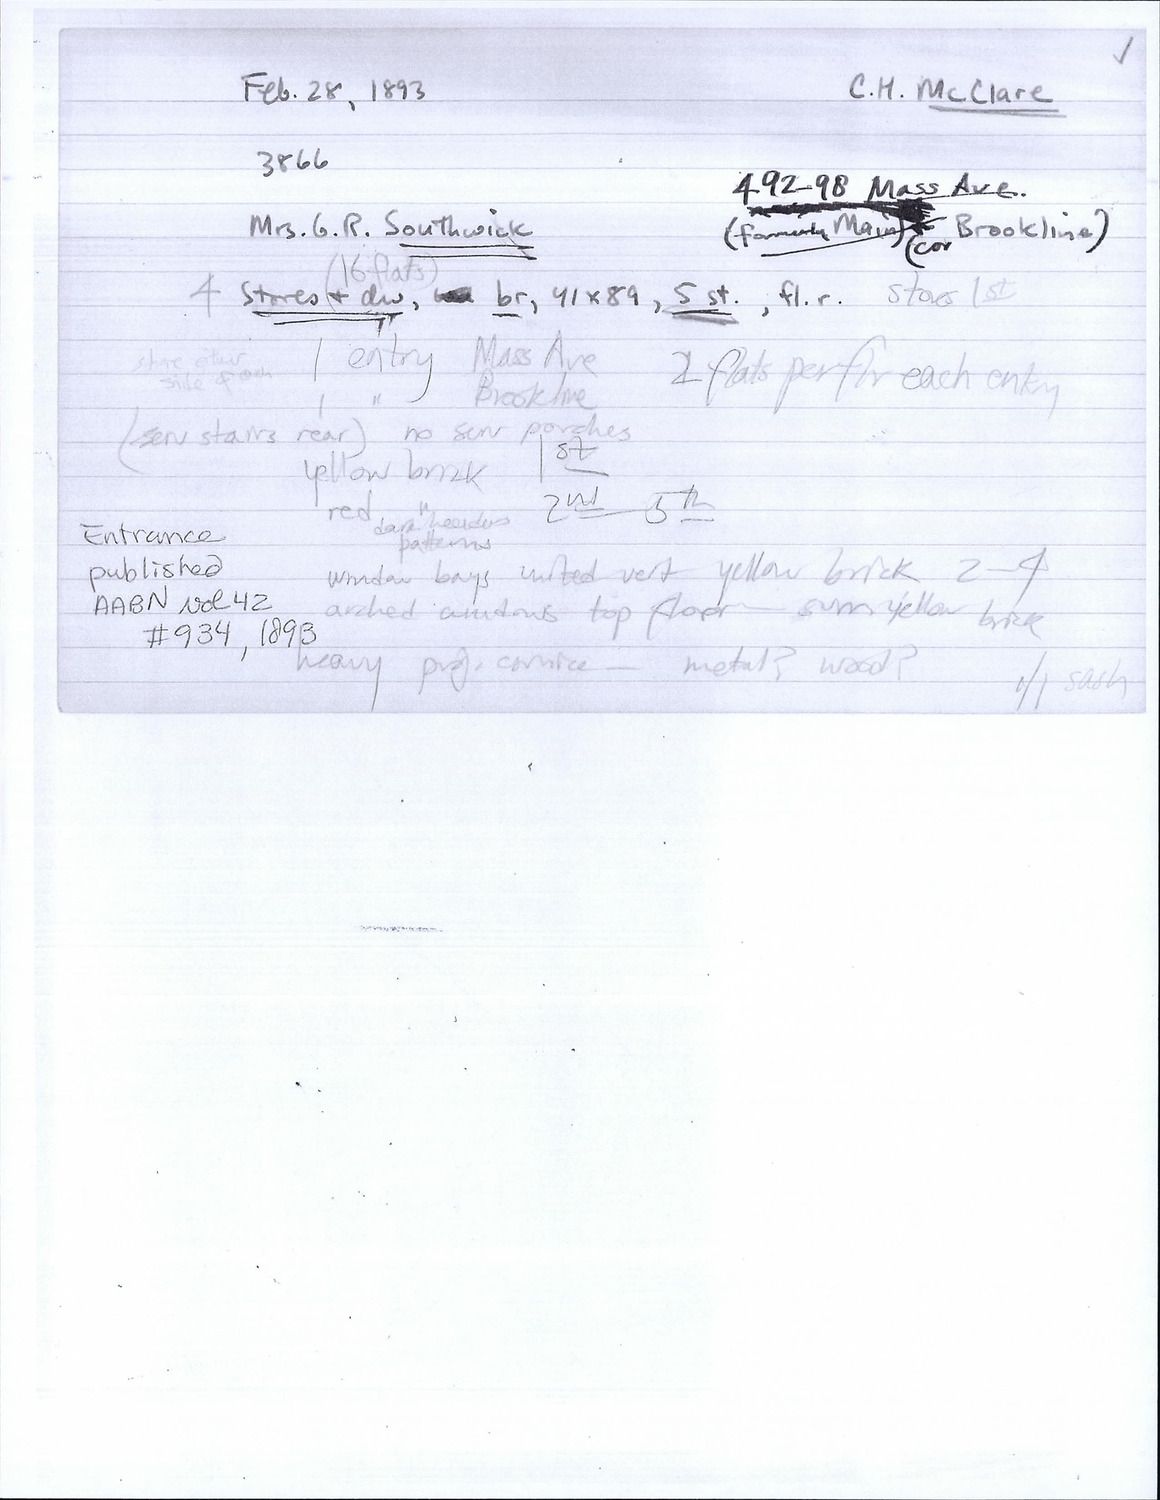 ✓
Feb. 28, 1893 C.H. McClare
3866
492-98 Mass Ave.
Mrs. G.R. Southwick (formerly Main) (cor Brookline)
(16 flats)
4 Stores + dw, br, 41 x 89, 5 st., fl. r. stores 1st
store either
side of each
1 entry Mass Ave 2 flats per flr each entry
1 " Brookline
(serv stairs rear) no serv porches
yellow brick 1st
red " 2nd - 5th
dark headers
patterns
Entrance
published
AABN vol 42
#934, 1893
window bays united vert yellow brick 2-4
arched windows top floor - yellow brick
heavy proj. cornice - metal? wood?
1/1 sash